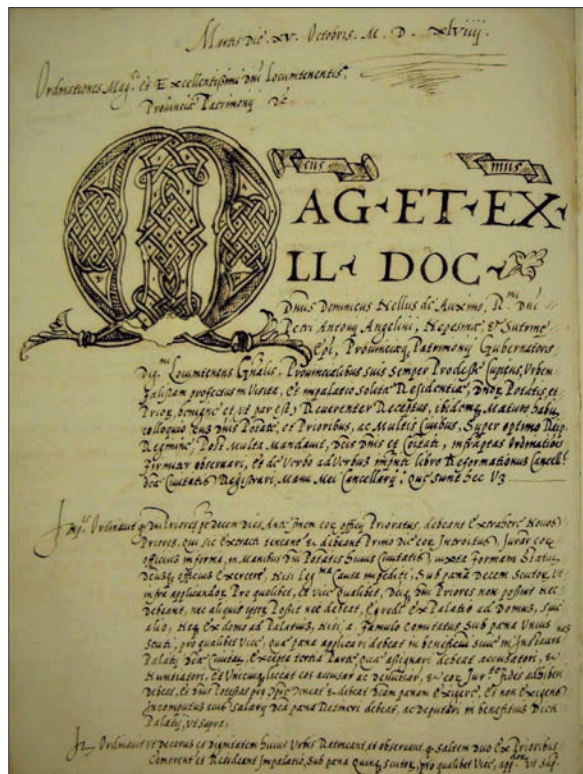 Martis Die XV. Octobris. M. D. xlviiij.
Ordinationes Mag.ci et Excellentissimi Dni Locumtenentis,
Provinciæ Patrimonij
cus mus
MAG·ET·EX
ILL· DOC·
Dnus Dominicus Hellus de Auximo, R.mi Dni
Petri Antonij Angelini, Nepesinæ, et Sutrinæ
Epi, Provinciæq Patrimonij Gubernatoris
Dig.mi Locumtenens Gnalis. Provincialibus suis semper Prodesse Cupiens, Urbem
profectus in Visita, et in palatio solitæ Residentiæ, Potatis, et
Prior, benigne et ut par est, Reverenter Receptus, ibidemq Maturo habito
colloquio cum Dnis Potate, et Prioribus, ac Multis Civibus, Super optimo Reip
Regimine, Post Multa Mandavit, et Civitati, infraptas Ordinationes
firmiter observari, et de Verbo ad Verbum libro Reformationum Cancell
Civitatis Registrari, Manu Mei Cancellarij; Quæ sunt hec Vz
Ordinavit q Dni Priores Decem Dies Ante finem officij Prioratus, debeant Extrahere Novos
Priores, qui sic Extracti teneant et debeant Primo die Introitus, Jurare
officium in forma, in Manibus Dni Potatis huius Civitatis, iuxta formam Statut
officium Exercere, Nisi Causa impediti, Sub pæna Decem Scutor, Ut
infra applicandor Pro quolibet, et Vice qualibet, Dni Priores non possint Nec
Debeant, nec aliquis ipsor Possit nec debeat, Ex Palatio ad Domus, sive
alio, Neq Ex domo ad Palatium, Nisi a famulo Comitatus Sub pæna Unius
Scuti, pro qualibet Vice, quæ pæna applicari debeat in beneficium
Palatij Civitatis, Excepta tertia Parte, quæ assignari debeat accusatori,
Nuntiatori, et Unicuiq liceat eos accusare ac Denuntiare, et fides adhiberi
Debeat, et Dnus Potestas teneat et debeat pænam Exigere, Et non Exigens
In computum sui Salarij pæna Retineri debeat, ac Deputari in beneficium Dicti
Palatij, ut supra,
Jt. Ordinavit ut Decorus et dignitatem huius Urbis Retineant, et observant, q saltem duo Ex Prioribus
Comorent et Resideant in palatio, Sub pæna quinq scutor, pro qualibet Vice, Ut Sup.